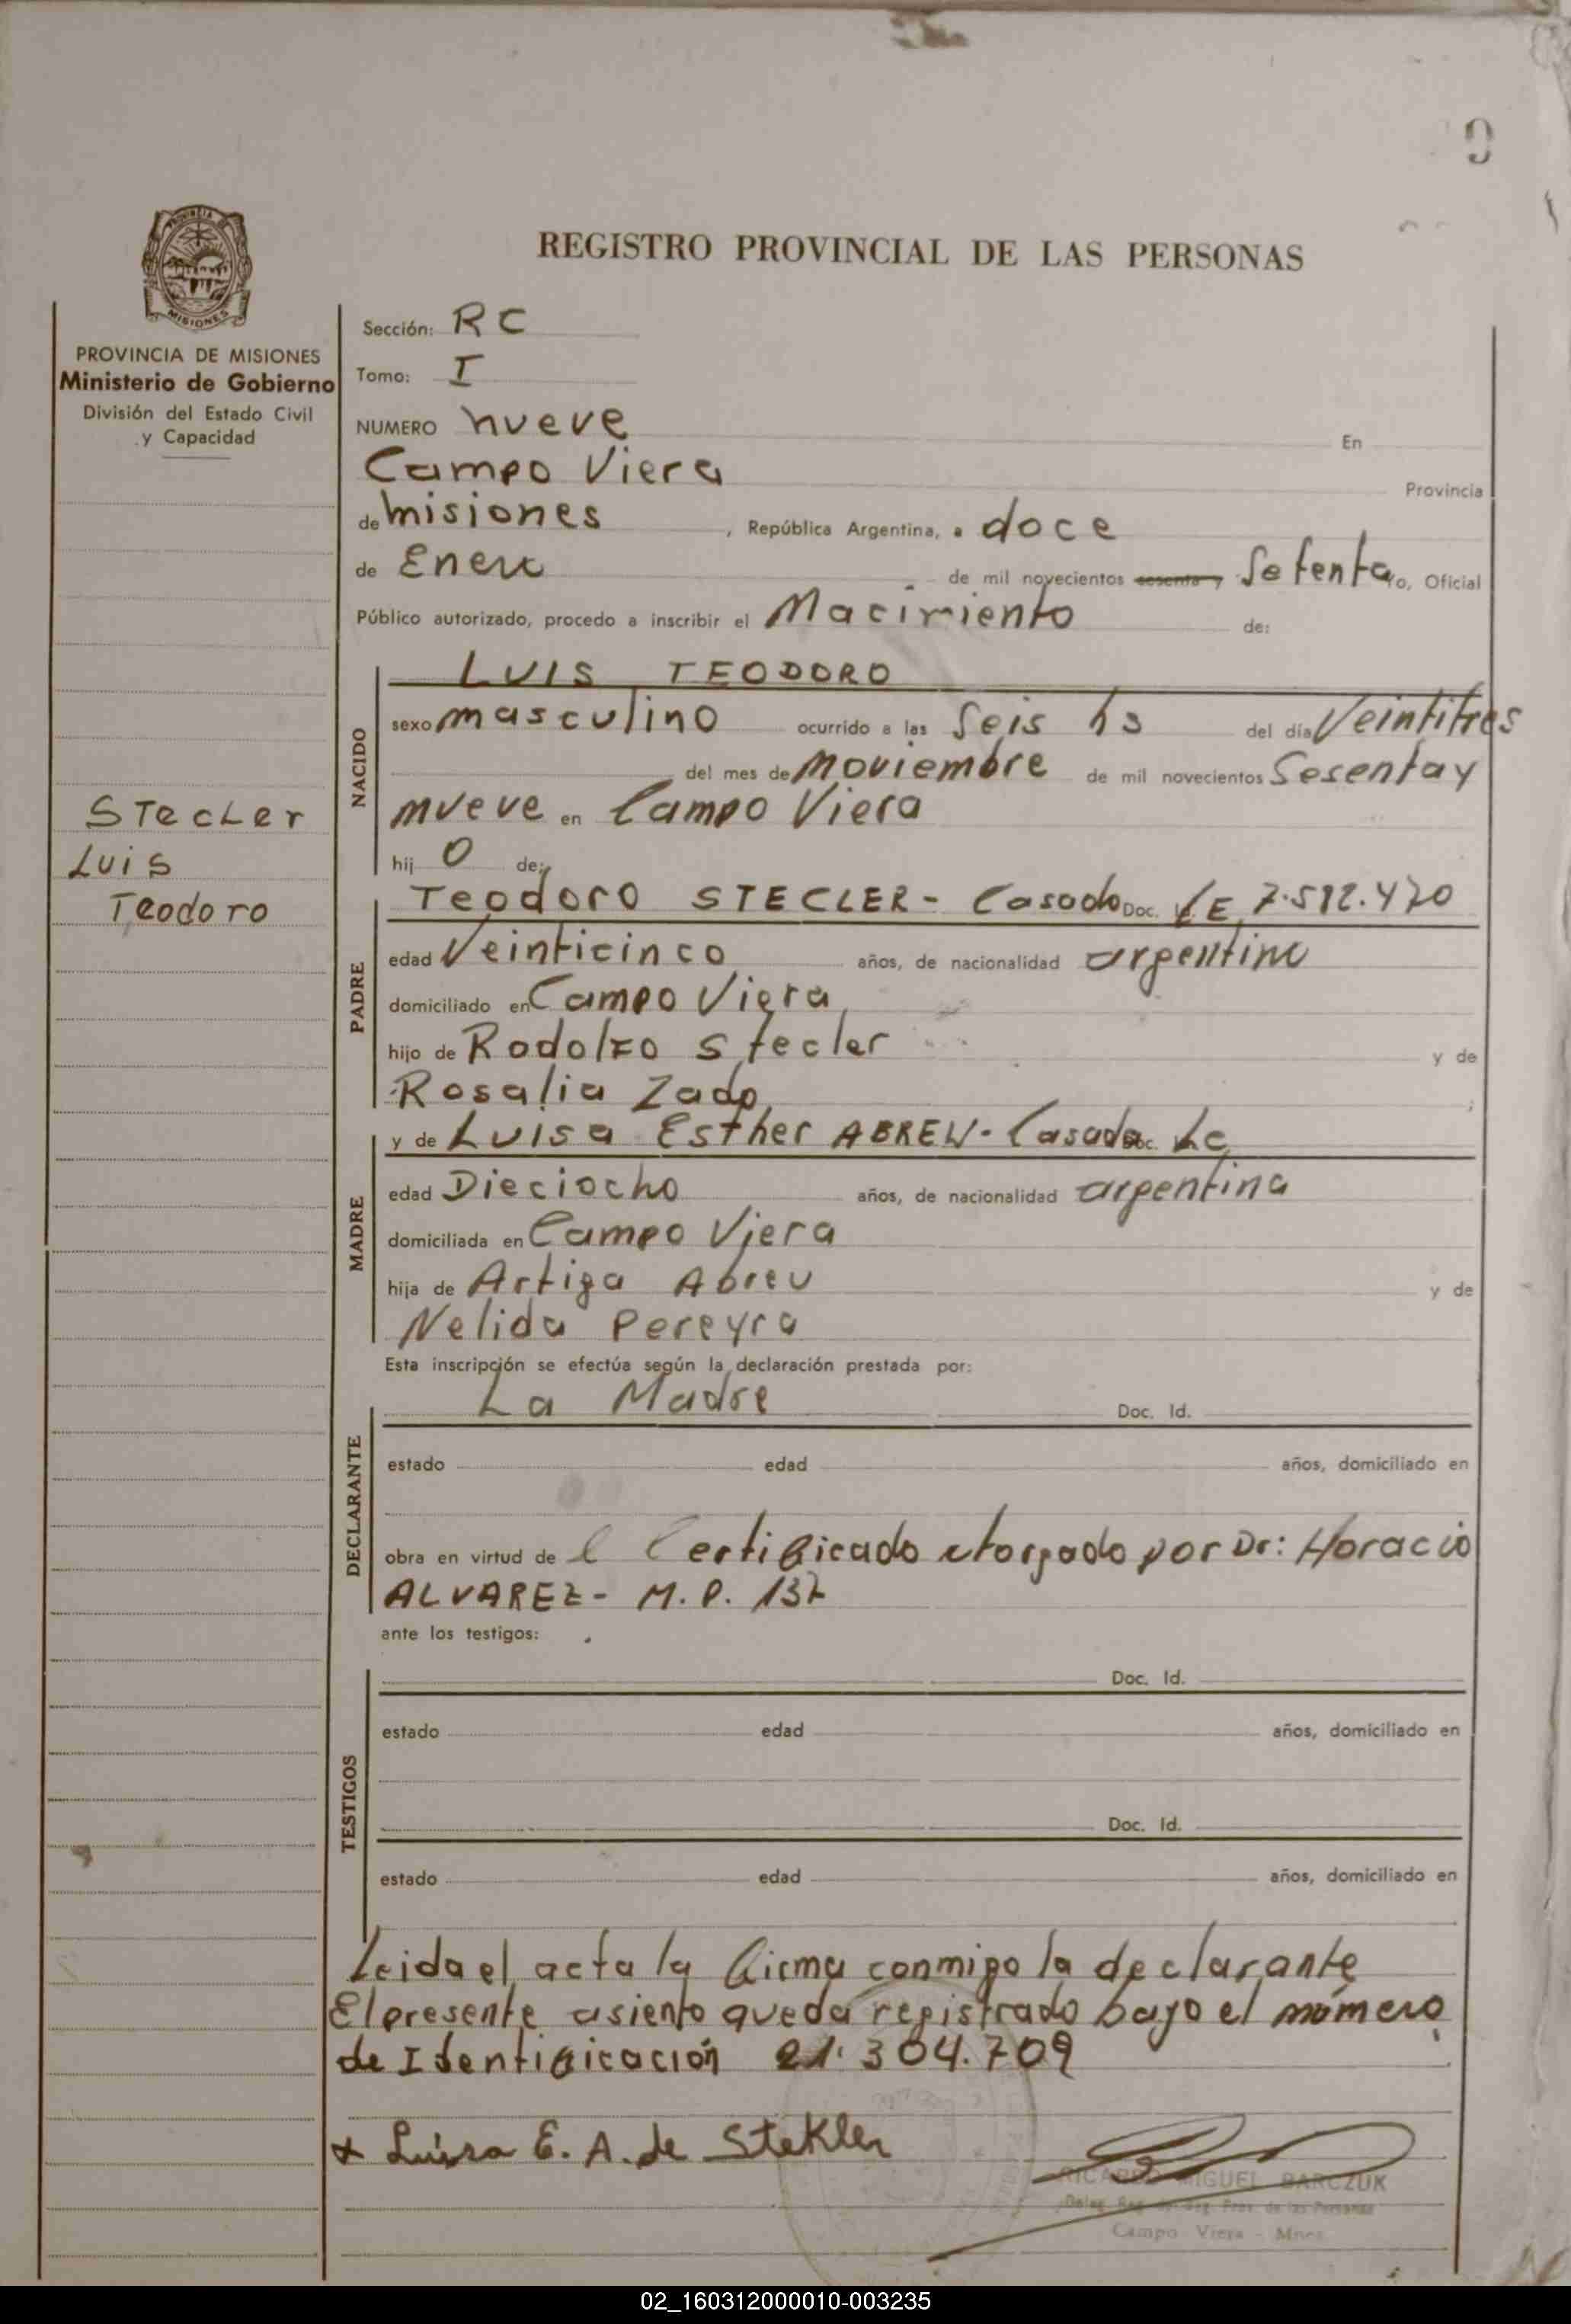 9
REGISTRO PROVINCIAL DE LAS PERSONAS
MISIONES
PROVINCIA DE MISIONES
Ministerio de Gobierno
División del Estado Civil
y Capacidad
Stecler
Luis
Teodoro
Sección: RC
Tomo: I
NUMERO nueve En
Campo Viera Provincia
de misiones, República Argentina, a doce
de Enero de mil novecientos sesenta y Setenta Yo, Oficial
Público autorizado, procedo a inscribir el Nacimiento de:
NACIDO
LUIS TEODORO
sexo masculino ocurrido a las Seis hs del día Veintitres
del mes de Noviembre de mil novecientos Sesenta y
nueve en Campo Viera
hij o de:
PADRE
Teodoro STECLER - Casado Doc. LE 7.512.470
edad Veinticinco años, de nacionalidad argentino
domiciliado en Campo Viera
hijo de Rodolfo Stecler y de
Rosalia Zado;
MADRE
y de Luisa Esther ABREU - Casada Doc. LC
edad Dieciocho años, de nacionalidad argentina
domiciliada en Campo Viera
hija de Artiga Abreu y de
Nelida Pereyra
Esta inscripción se efectúa según la declaración prestada por:
DECLARANTE
La Madre Doc. Id.
estado edad años, domiciliado en
obra en virtud de l Certificado otorgado por Dr: Horacio
ALVAREZ - M.P. 137
ante los testigos:
TESTIGOS
Doc. Id.
estado edad años, domiciliado en
Doc. Id.
estado edad años, domiciliado en
Leida el acta la firma conmigo la declarante
El presente asiento queda registrado bajo el número
de Identificación 21.304.709
x Luisa E. A. de Stekler
RICARDO MIGUEL BARCZUK
Campo Viera - Mnes
02_160312000010-003235